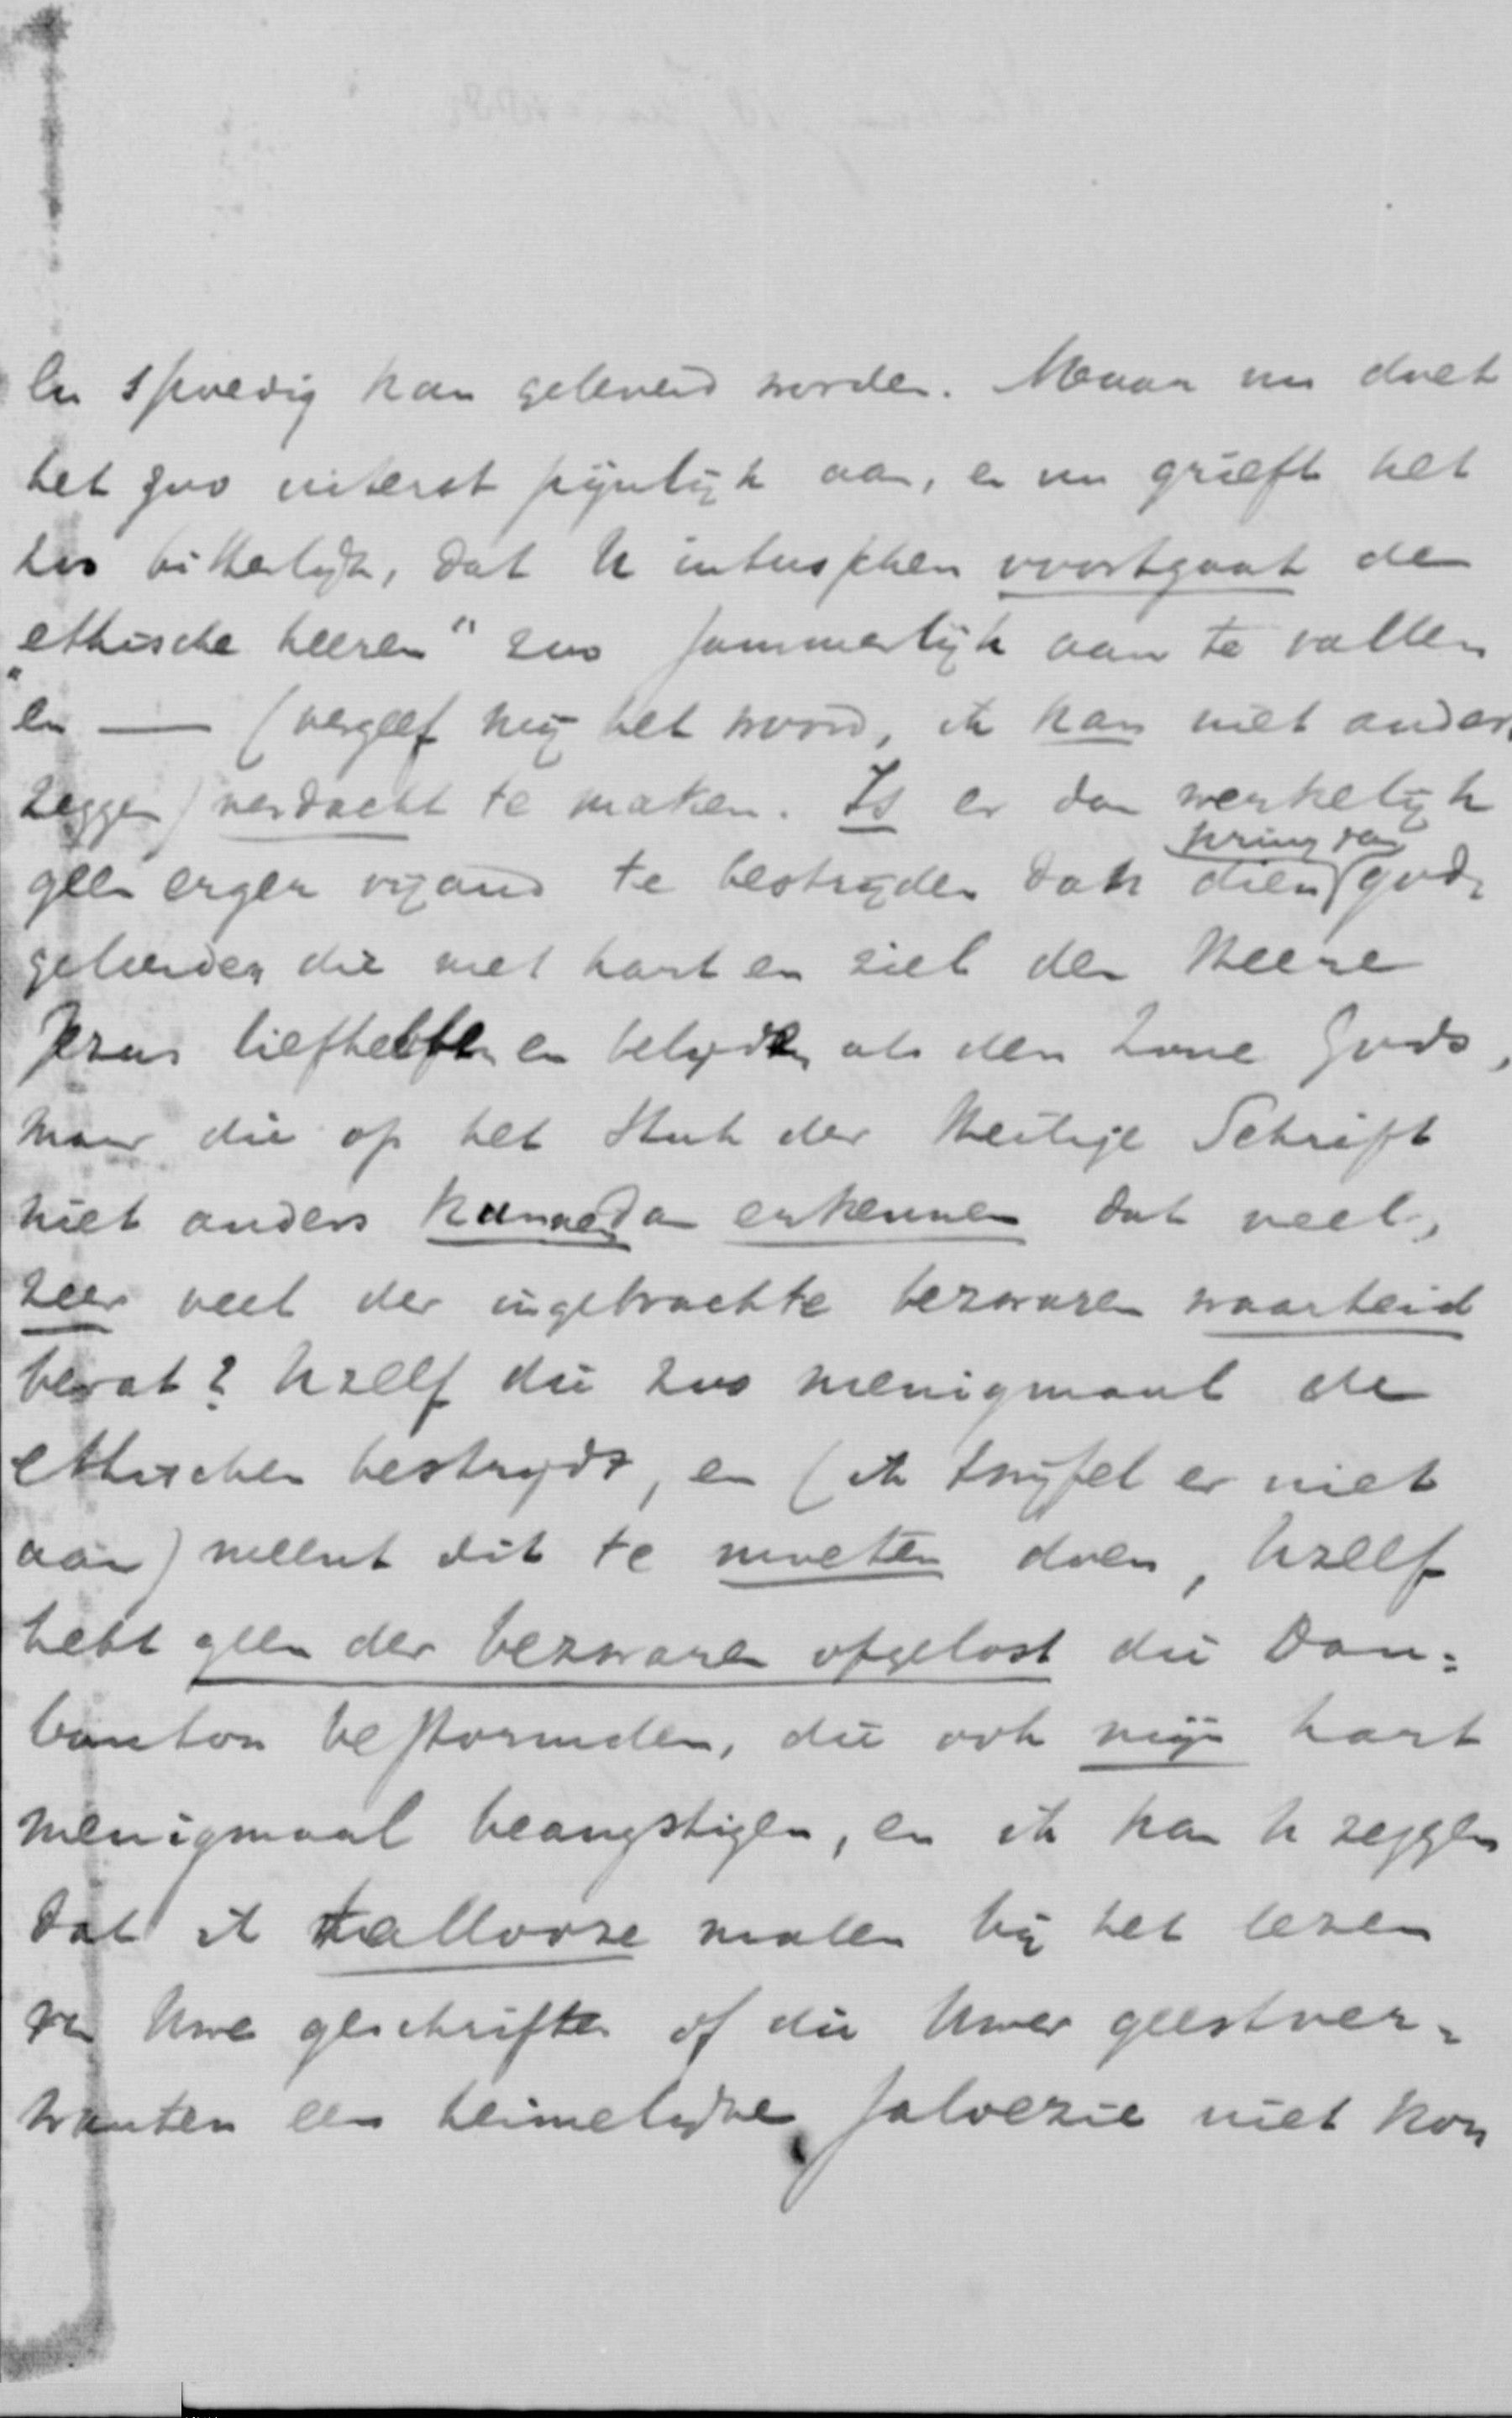 en spoedig kan geleverd worden. Maar nu doet
het zoo uiterst pijnlijk aan, en nu grieft het
zoo bitterlijk, dat U intusschen voortgaat de
"ethische heeren" zoo jammerlijk aan te vallen
en — (vergeef mij het woord, ik kan niet anders
zeggen) verdacht te maken. Is er dan werkelijk
kring van
geen erger vijand te bestrijden dan dien god-
geleerden die met hart en ziel den Heere
Jezus liefhebben en belijden als den Zone Gods,
maar die op het stuk der Heilige Schrift
niet anders kunnen dan erkennen dat veel,
zeer veel der ingebrachte bezwaren waarheid
bevat? Uzelf die zoo menigmaal de
ethischen bestrijdt, en (ik twijfel er niet
aan) meent dit te moeten doen, Uzelf
hebt geen der bezwaren opgelost die Dau-
banton bestormden, die ook mijn hart
menigmaal beangstigen, en ik kan U zeggen
dat ik tallooze malen bij het lezen
van Uwe geschriften of die Uwer geestver-
wanten een heimelijke jaloezie niet kon